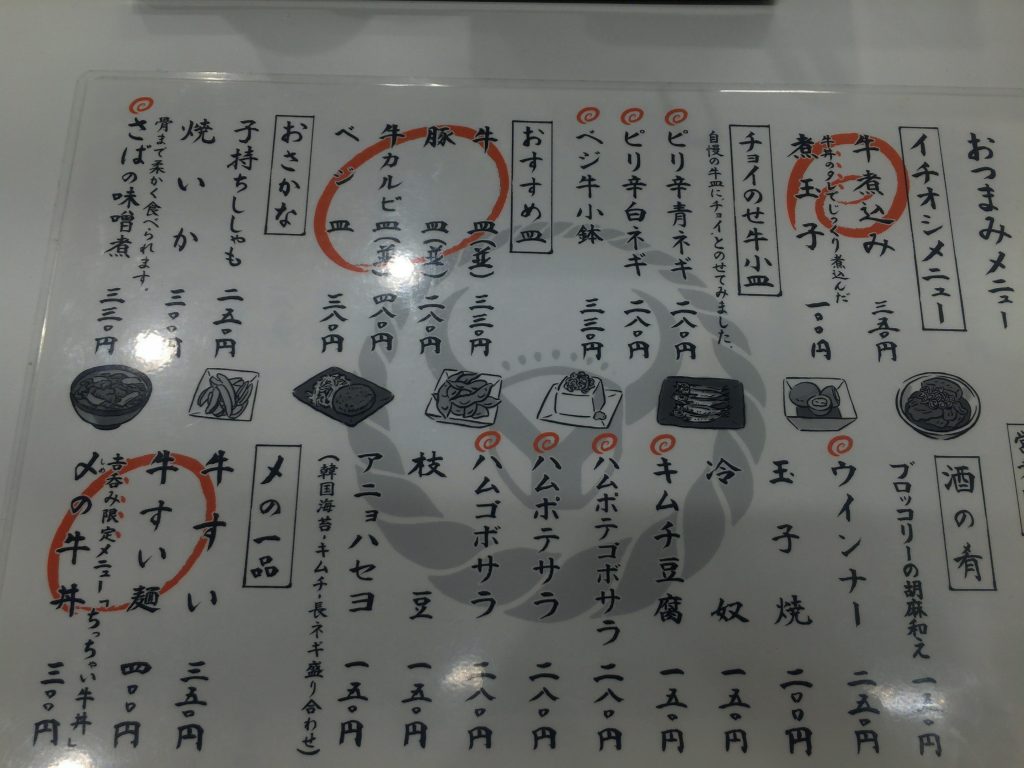 おつまみメニュー
イチオシメニュー
牛煮込み 三五〇円
牛丼のタレでじっくり煮込んだ
煮玉子 一〇〇円
チョイのせ牛小皿
自慢の牛皿にチョイとのせてみました。
ピリ辛青ネギ 二八〇円
ピリ辛白ネギ 二八〇円
ベジ牛小鉢 三三〇円
おすすめ皿
牛皿(並) 三三〇円
豚皿(並) 二八〇円
牛カルビ皿(並) 四八〇円
ベジ皿 三八〇円
おさかな
子持ちししゃも 二五〇円
焼いか 三〇〇円
骨まで柔かく食べられます。
さばの味噌煮 三三〇円
酒の肴
ブロッコリーの胡麻和え 一五〇円
ウインナー 二五〇円
玉子焼 二〇〇円
冷奴 一五〇円
キムチ豆腐 一五〇円
ハムポテゴボサラ 二八〇円
ハムポテサラ 二八〇円
ハムゴボサラ 二八〇円
枝豆 一五〇円
アニョハセヨ 一五〇円
(韓国海苔・キムチ・長ネギ盛り合わせ)
〆の一品
牛すい 三五〇円
牛すい麺 四〇〇円
吉呑み限定メニュー「ちっちゃい牛丼」
〆の牛丼 三〇〇円